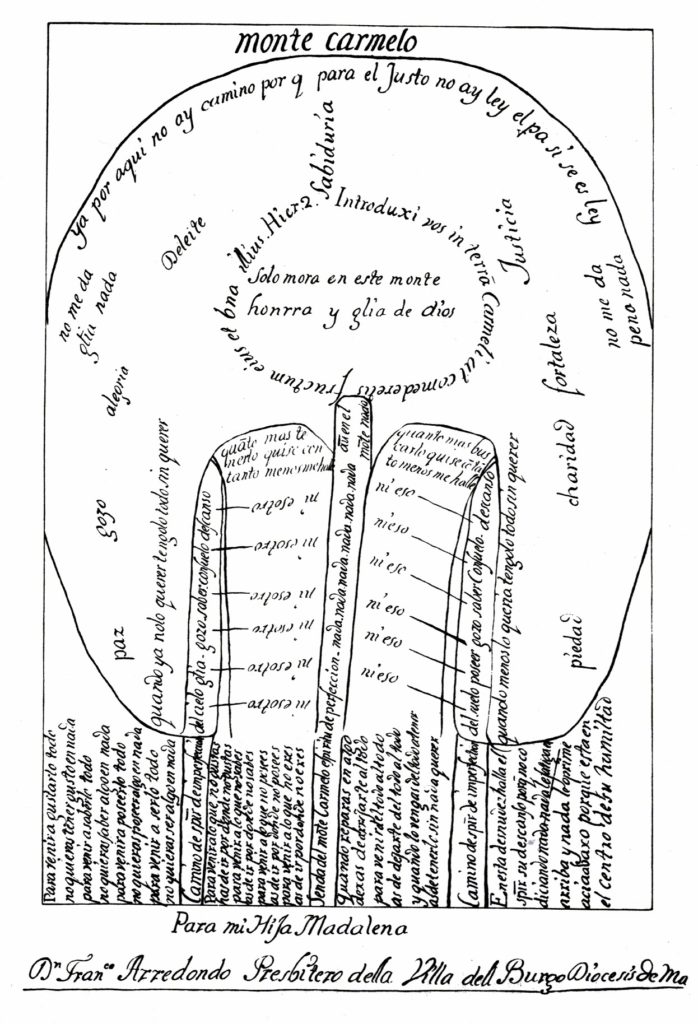 monte carmelo
ya por aqui no ay camino por q para el Justo no ay ley el pa si se es ley
Sabiduria
Deleite
Justicia
Introduxi vos in terrā Carmeli ut comederetis fructum eius et bna illius. Hier 2.
Solo mora en este monte
honrra y glia de dios
no me da
glia nada
no me da
pena nada
alegria
fortaleza
gozo
charidad
paz
piedad
quando ya nolo querer tengolo todo sin querer
quāto mas te
nerlo quise con
tanto menos me halle
aū en el
mōte nada
quanto mas bus
carlo quise cō tā
to menos me halle
quando menos lo queria tengolo todo sin querer
ni esotro
ni esotro
ni esotro
ni esotro
ni esotro
ni esotro
ni eso
ni eso
ni eso
ni eso
ni eso
ni eso
Camino de spū de imperfecciō del cielo glia. gozo. saber. consuelo. descanso
Senda del mōte Carmelo espiritu de perfeccion. nada. nada. nada. nada. nada. nada
Camino de spū de imperfecciō del suelo poseer gozo saber Consuelo. descanso
Para venir a gustarlo todo
no quieras tener gusto en nada
para venir a saberlo todo
no quieras saber algo en nada
para venir a poseerlo todo
no quieras poseer algo en nada
para venir a serlo todo
no quieras ser algo en nada
Para venir a lo que no gustas
has de ir por donde no gustas
para venir a lo que no sabes
as de ir por donde no sabes
para venir a lo que no posees
as de ir por donde no posees
para venir a lo que no eres
as de ir por donde no eres
quando reparas en algo
dexas de arrojarte al todo
para venir del todo al todo
as de dejarte del todo al todo
y quando lo vengas del todo a tener
as de tenerlo sin nada querer
En esta desnuez halla el
spū su descanso porq no co
diciando nada nada le fatiga
arriba y nada le oprime
acia abaxo porque esta en
el centro de su humildad
Para mi Hija Madalena
Dn Franco Arredondo Presbitero della Villa dell Burgo Diocesis de Ma